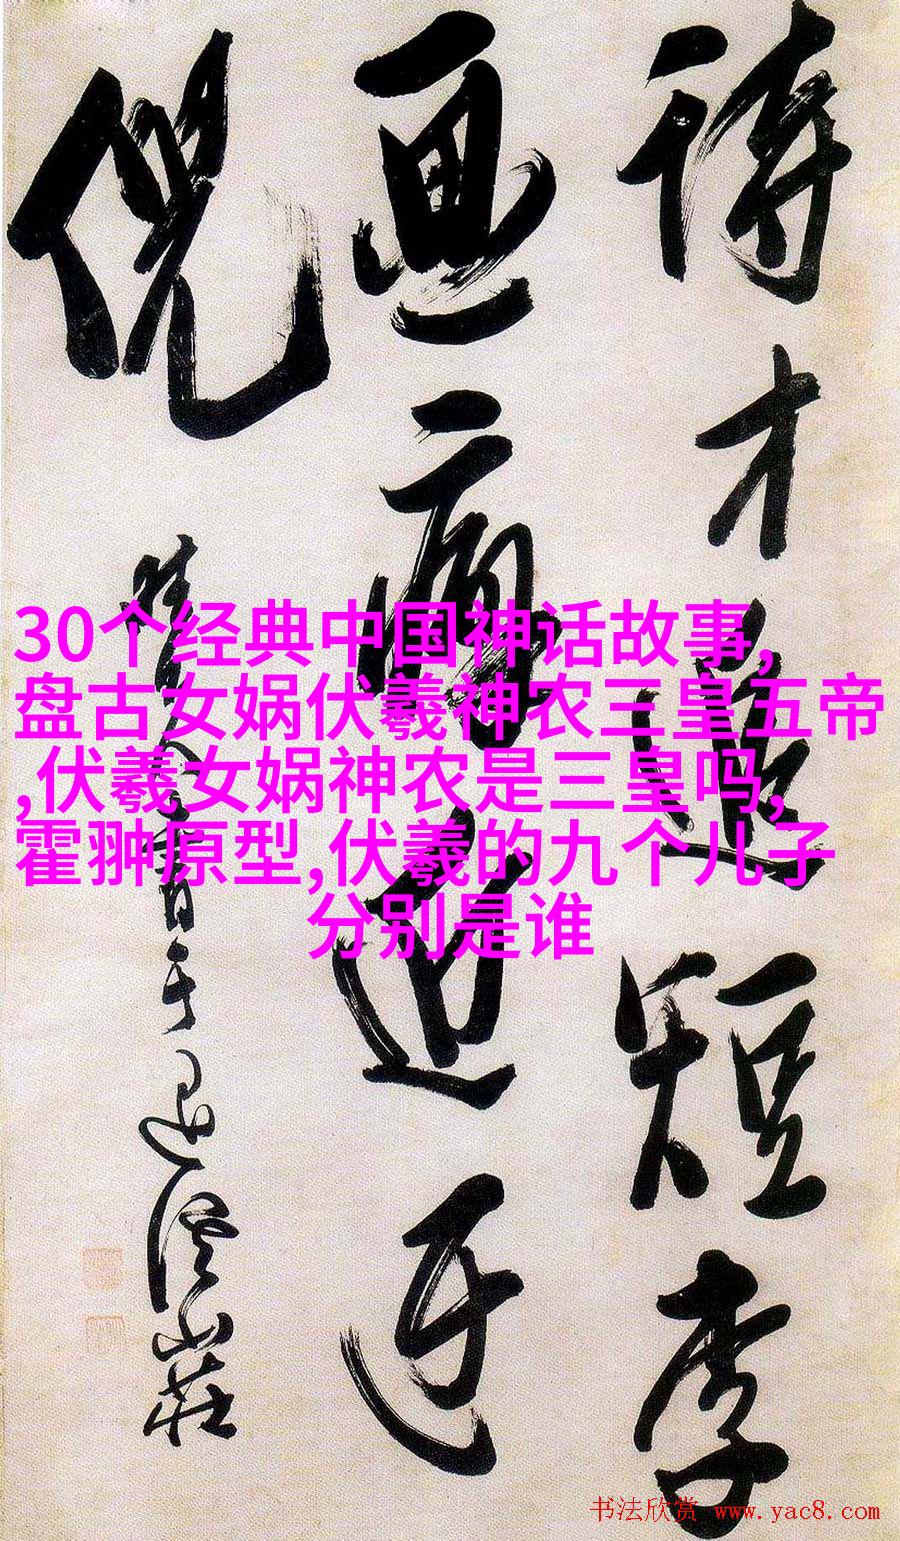 30个经典中国神话故事,
盘古女娲伏羲神农三皇五帝
,伏羲女娲神农是三皇吗,
霍翀原型,伏羲的九个儿子
分别是谁
詩才追短李
画迂
倪
山莊
书法欣赏 www.yac8.com